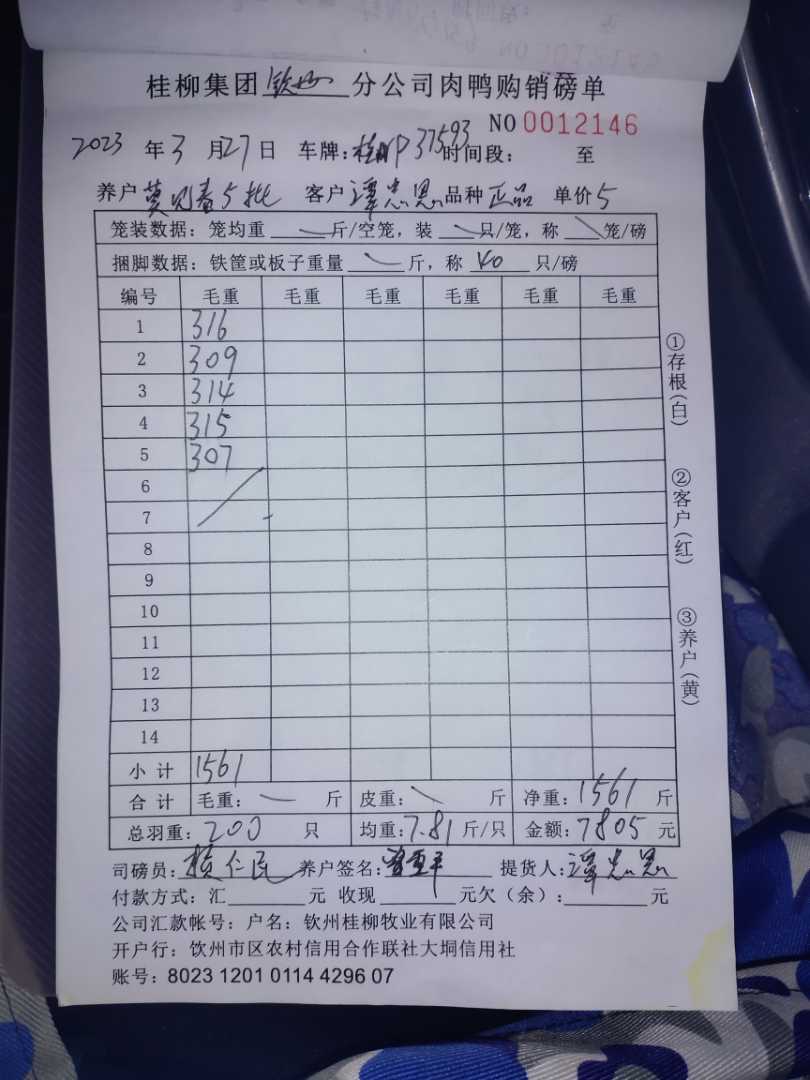 桂柳集团钦州分公司肉鸭购销磅单
NO 0012146
2023年3月27日 车牌:桂 P37593 时间段: 至
养户 莫见春5批 客户 谭忠恩 品种 正品 单价 5
笼装数据:笼均重 斤/空笼,装 只/笼,称 笼/磅
捆脚数据:铁筐或板子重量 斤,称 40 只/磅
编号 毛重 毛重 毛重 毛重 毛重 毛重
1 316
2 309
3 314
4 315
5 307
6
7
8
9
10
11
12
13
14
小计 1561
合计 毛重: 斤 皮重: 斤 净重:1561 斤
总羽重:200 只 均重:7.81 斤/只 金额:7805 元
司磅员: 仁民 养户签名: 提货人:谭忠恩
付款方式:汇 元 收现 元欠(余): 元
公司汇款帐号:户名:钦州桂柳牧业有限公司
开户行:饮州市区农村信用合作联社大垌信用社
账号:8023 1201 0114 4296 07
①存根(白)
②客户(红)
③养户(黄)